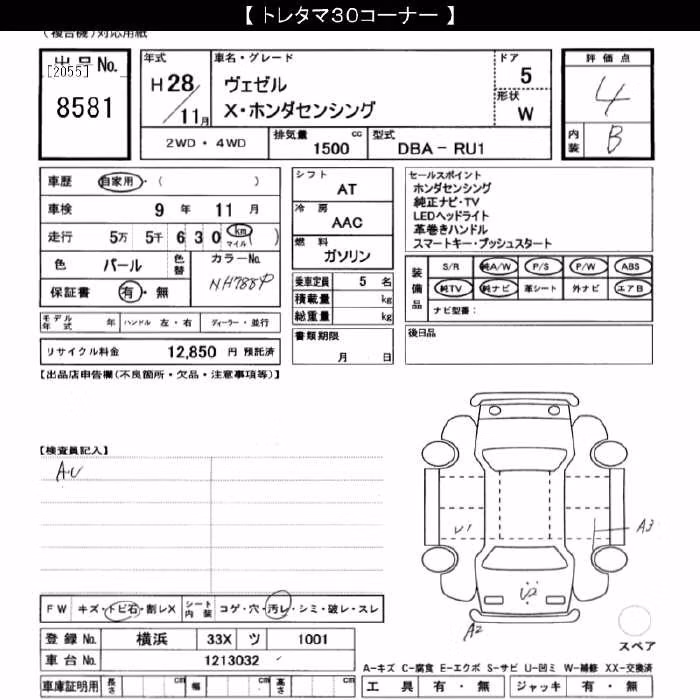 【 トレタマ30コーナー 】
(複合機)対応用紙
出品No.
[2055]
8581
年式
H28/11月
車名・グレード
ヴェゼル
X・ホンダセンシング
ドア
5
形状
W
評価点
4
内装
B
2WD・4WD
排気量
1500 cc
型式
DBA－RU1
車歴 自家用・( )
車検 9年 11月
走行 5万 5千 6 3 0 km マイル ( )
色 パール 色替
カラーNo.
NH788P
保証書 有・無
シフト
AT
冷房
AAC
燃料
ガソリン
乗車定員 5名
積載量 kg
総重量 kg
セールスポイント
ホンダセンシング
純正ナビ・TV
LEDヘッドライト
革巻きハンドル
スマートキー・プッシュスタート
装備品
S/R 純A/W P/S P/W ABS
純TV 純ナビ 革シート 外ナビ エアB
ナビ型番：
モデル年式 年 ハンドル 左・右 ディーラー・並行
リサイクル料金 12,850 円 預託済
書類期限
月 日
後日品
【出品店申告欄(不良箇所・欠品・注意事項等)】
【検査員記入】
AU
U1
A3
U2
A2
スペア
FW キズ・トビ石・割レX
シート内装 コゲ・穴・汚レ・シミ・破レ・スレ
登録No. 横浜 33X ツ 1001
車台No. 1213032
車庫証明用 長さ cm 幅 cm 高さ cm
A-キズ C-腐食 E-エクボ S-サビ U-凹ミ W-補修 XX-交換済
工具 有・無 ジャッキ 有・無